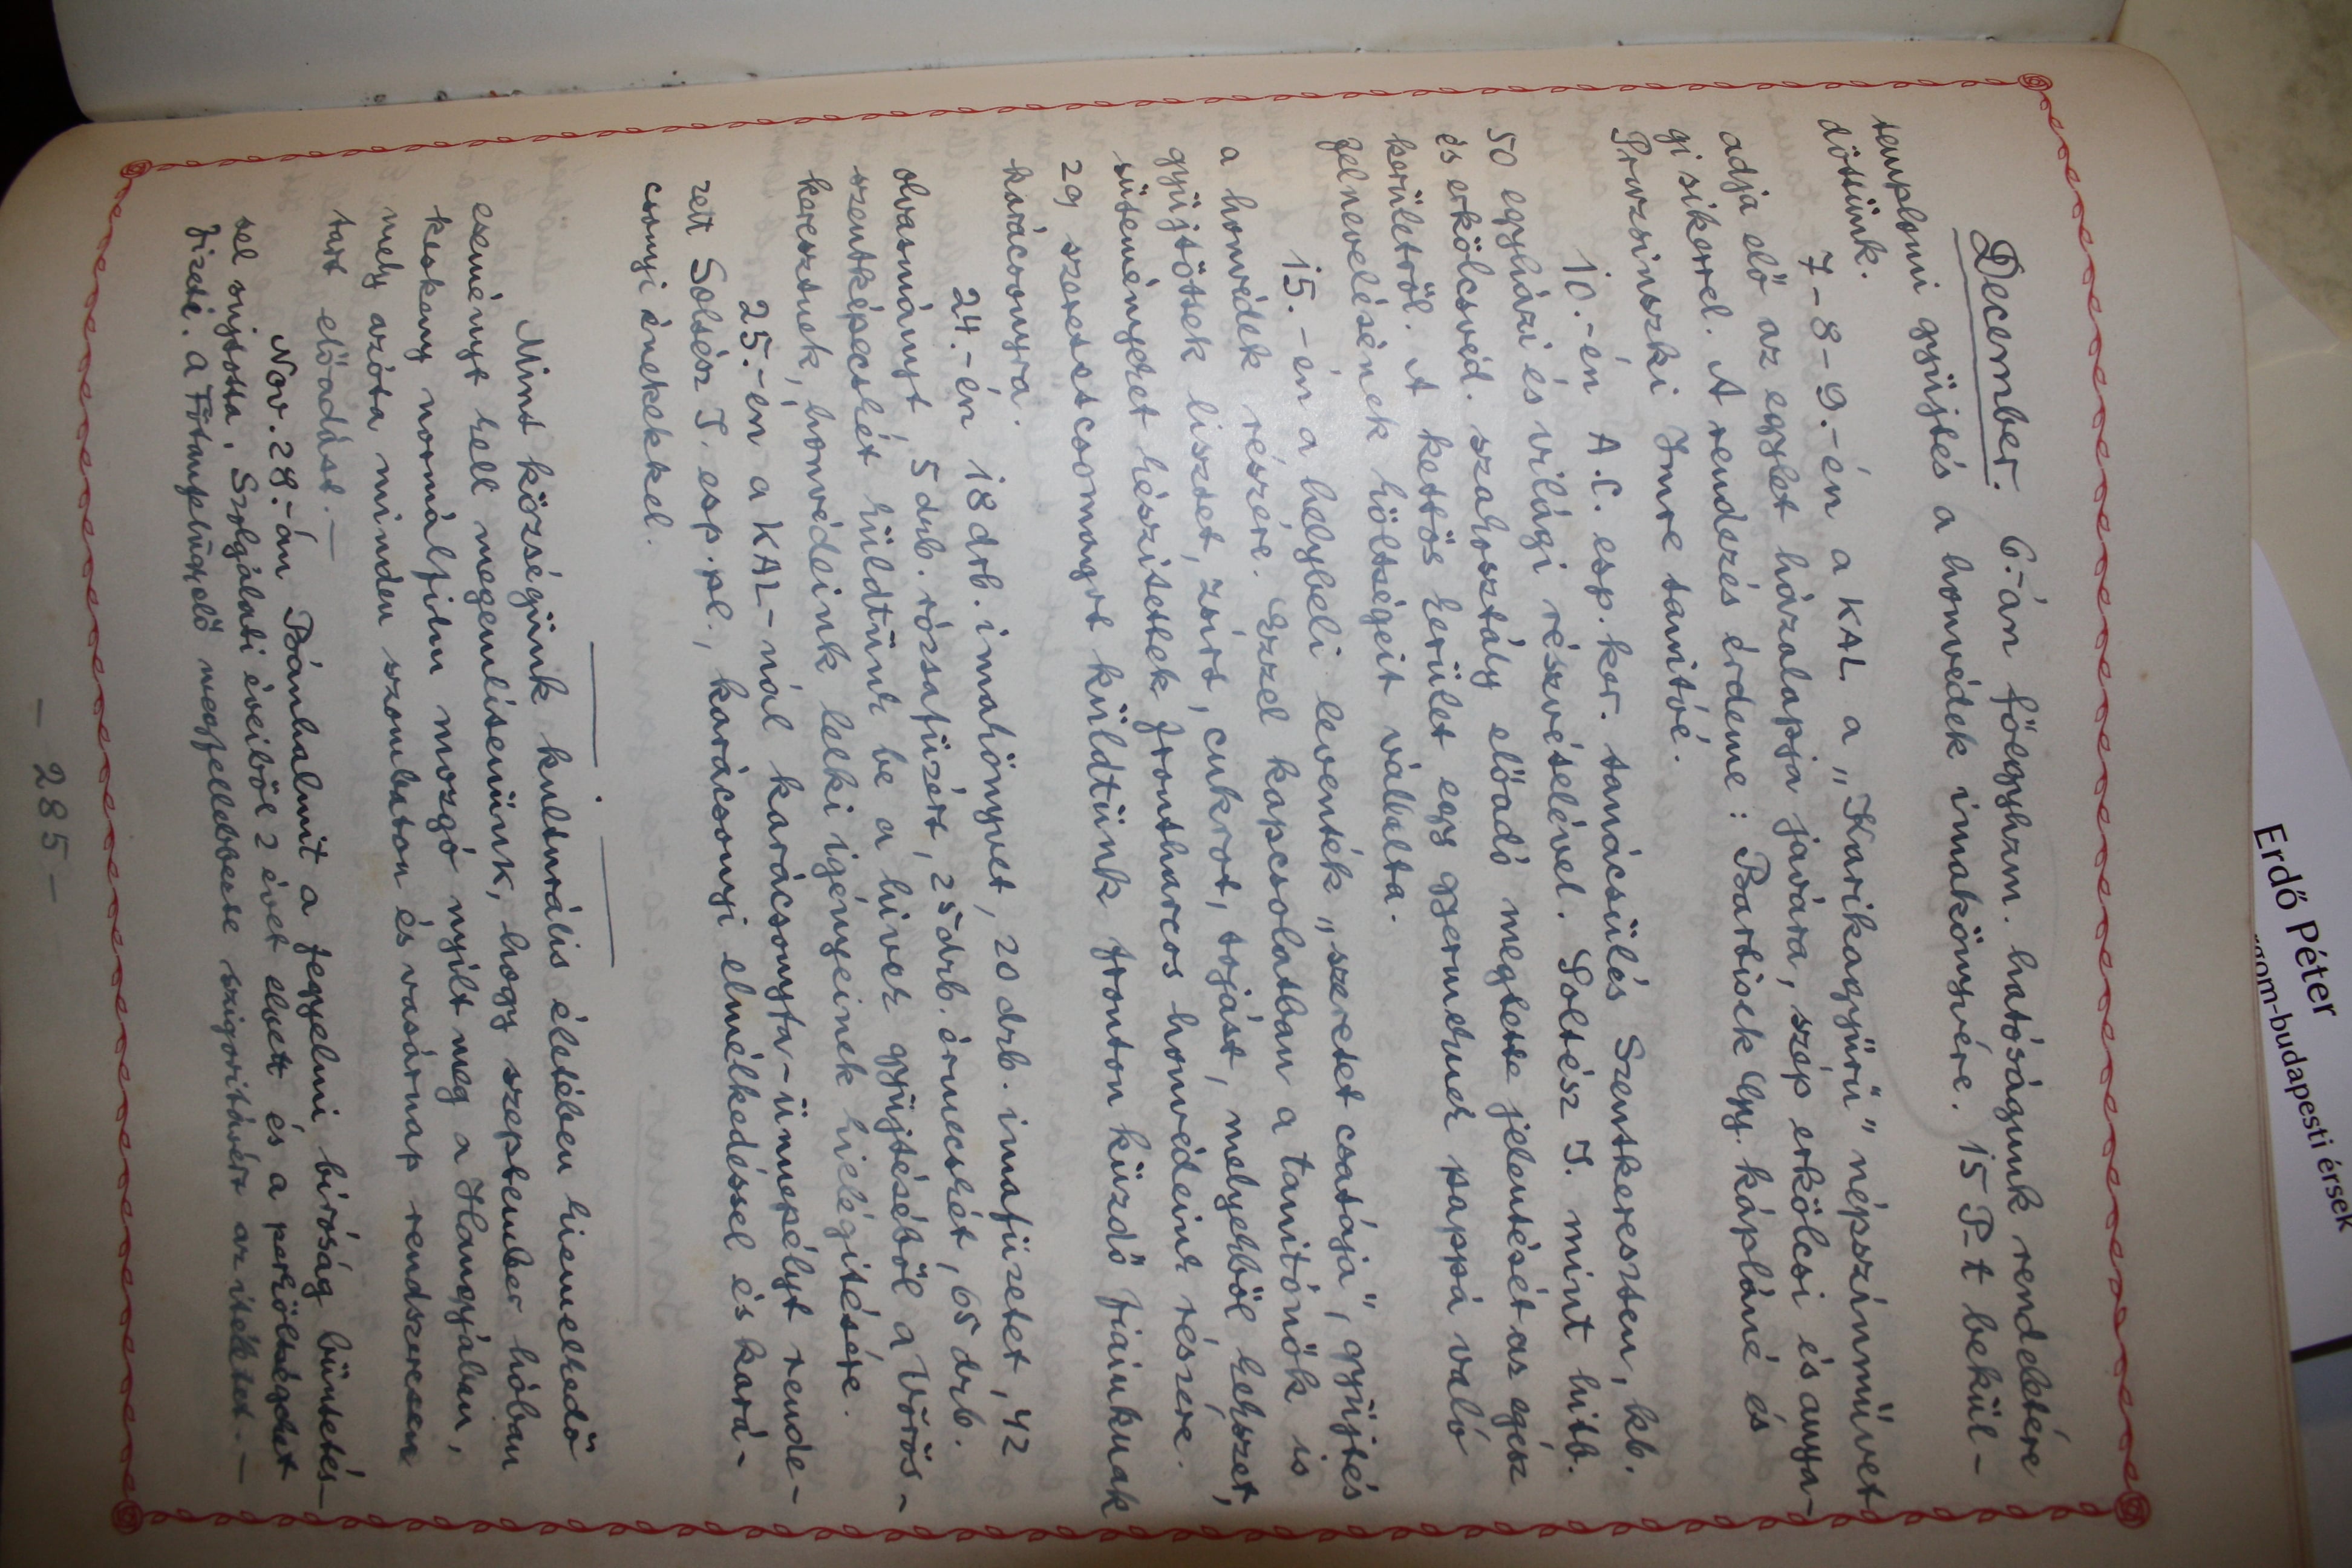 December. 6.-án főegyhzm. hatóságunk rendeletére
templomi gyüjtés a honvédek imakönyvére. 15 P-t bekül-
döttünk.
7-8-9.-én a KAL a „Karikagyürü" népszínművet
adja elő az egylet házalapja javára, szép erkölcsi és anya-
gi sikerrel. A rendezés érdeme: Bartisek Gy. kápláné és
Imre tanitóé.
10.-én A.C. esp. ker. tanácsülés Szentkereszten, kb.
50 egyházi és világi részvételével. Soltész J. mint hitb.
és erkölcsvéd. szakosztály előadó megtette jelentését az egész
kerületről. A kettős kerület egy gyermeknek pappá való
felnevelésének költségeit vállalta.
15.-én a helybeli leventék „szeretet csatája", gyüjtés
a honvédek részére. Ezzel kapcsolatban a tanitónők is
gyüjtöttek lisztet, zsirt, cukrot, tojást, melyekből kekszet,
süteményeket készitettek frontharcos honvédeink részére.
29 szeretetcsomagot küldtünk fronton küzdő fiainknak
karácsonyra.
24.-én 18 drb. imakönyvet, 20 drb. imafüzetet, 42
olvasmányt 5 drb. rózsafüzért, 25 drb. érmecskét, 65 drb.
szentképecskét küldtünk be a hivek gyüjtéséből a Vörös-
keresztnek, honvédeink lelki igényeinek kielégitésére.
25.-én a KAL-nál karácsonyfa-ünnepélyt rende-
zett Soltész J. esp. pl., karácsonyi elmélkedéssel és kará-
csonyi énekekkel.
Mint községünk kulturális életében kiemelkedő
eseményt kell megemlitenünk, hogy szeptember hóban
keskeny normálfilm mozgó nyilt meg a Hangyában,
mely azóta minden szombaton és vasárnap rendszeresen
tart előadást.—
Nov. 28.-án Bánhalmit a fegyelmi biróság büntetés-
sel sujtotta. Szolgálati éveiből 2 évet elvett és a perköltségeket
fizeti. A Főtanfelügyelő megfellebbezte szigoritásért az itéletet.—
- 285 -
Erdő Péter
gom-budapesti érsek